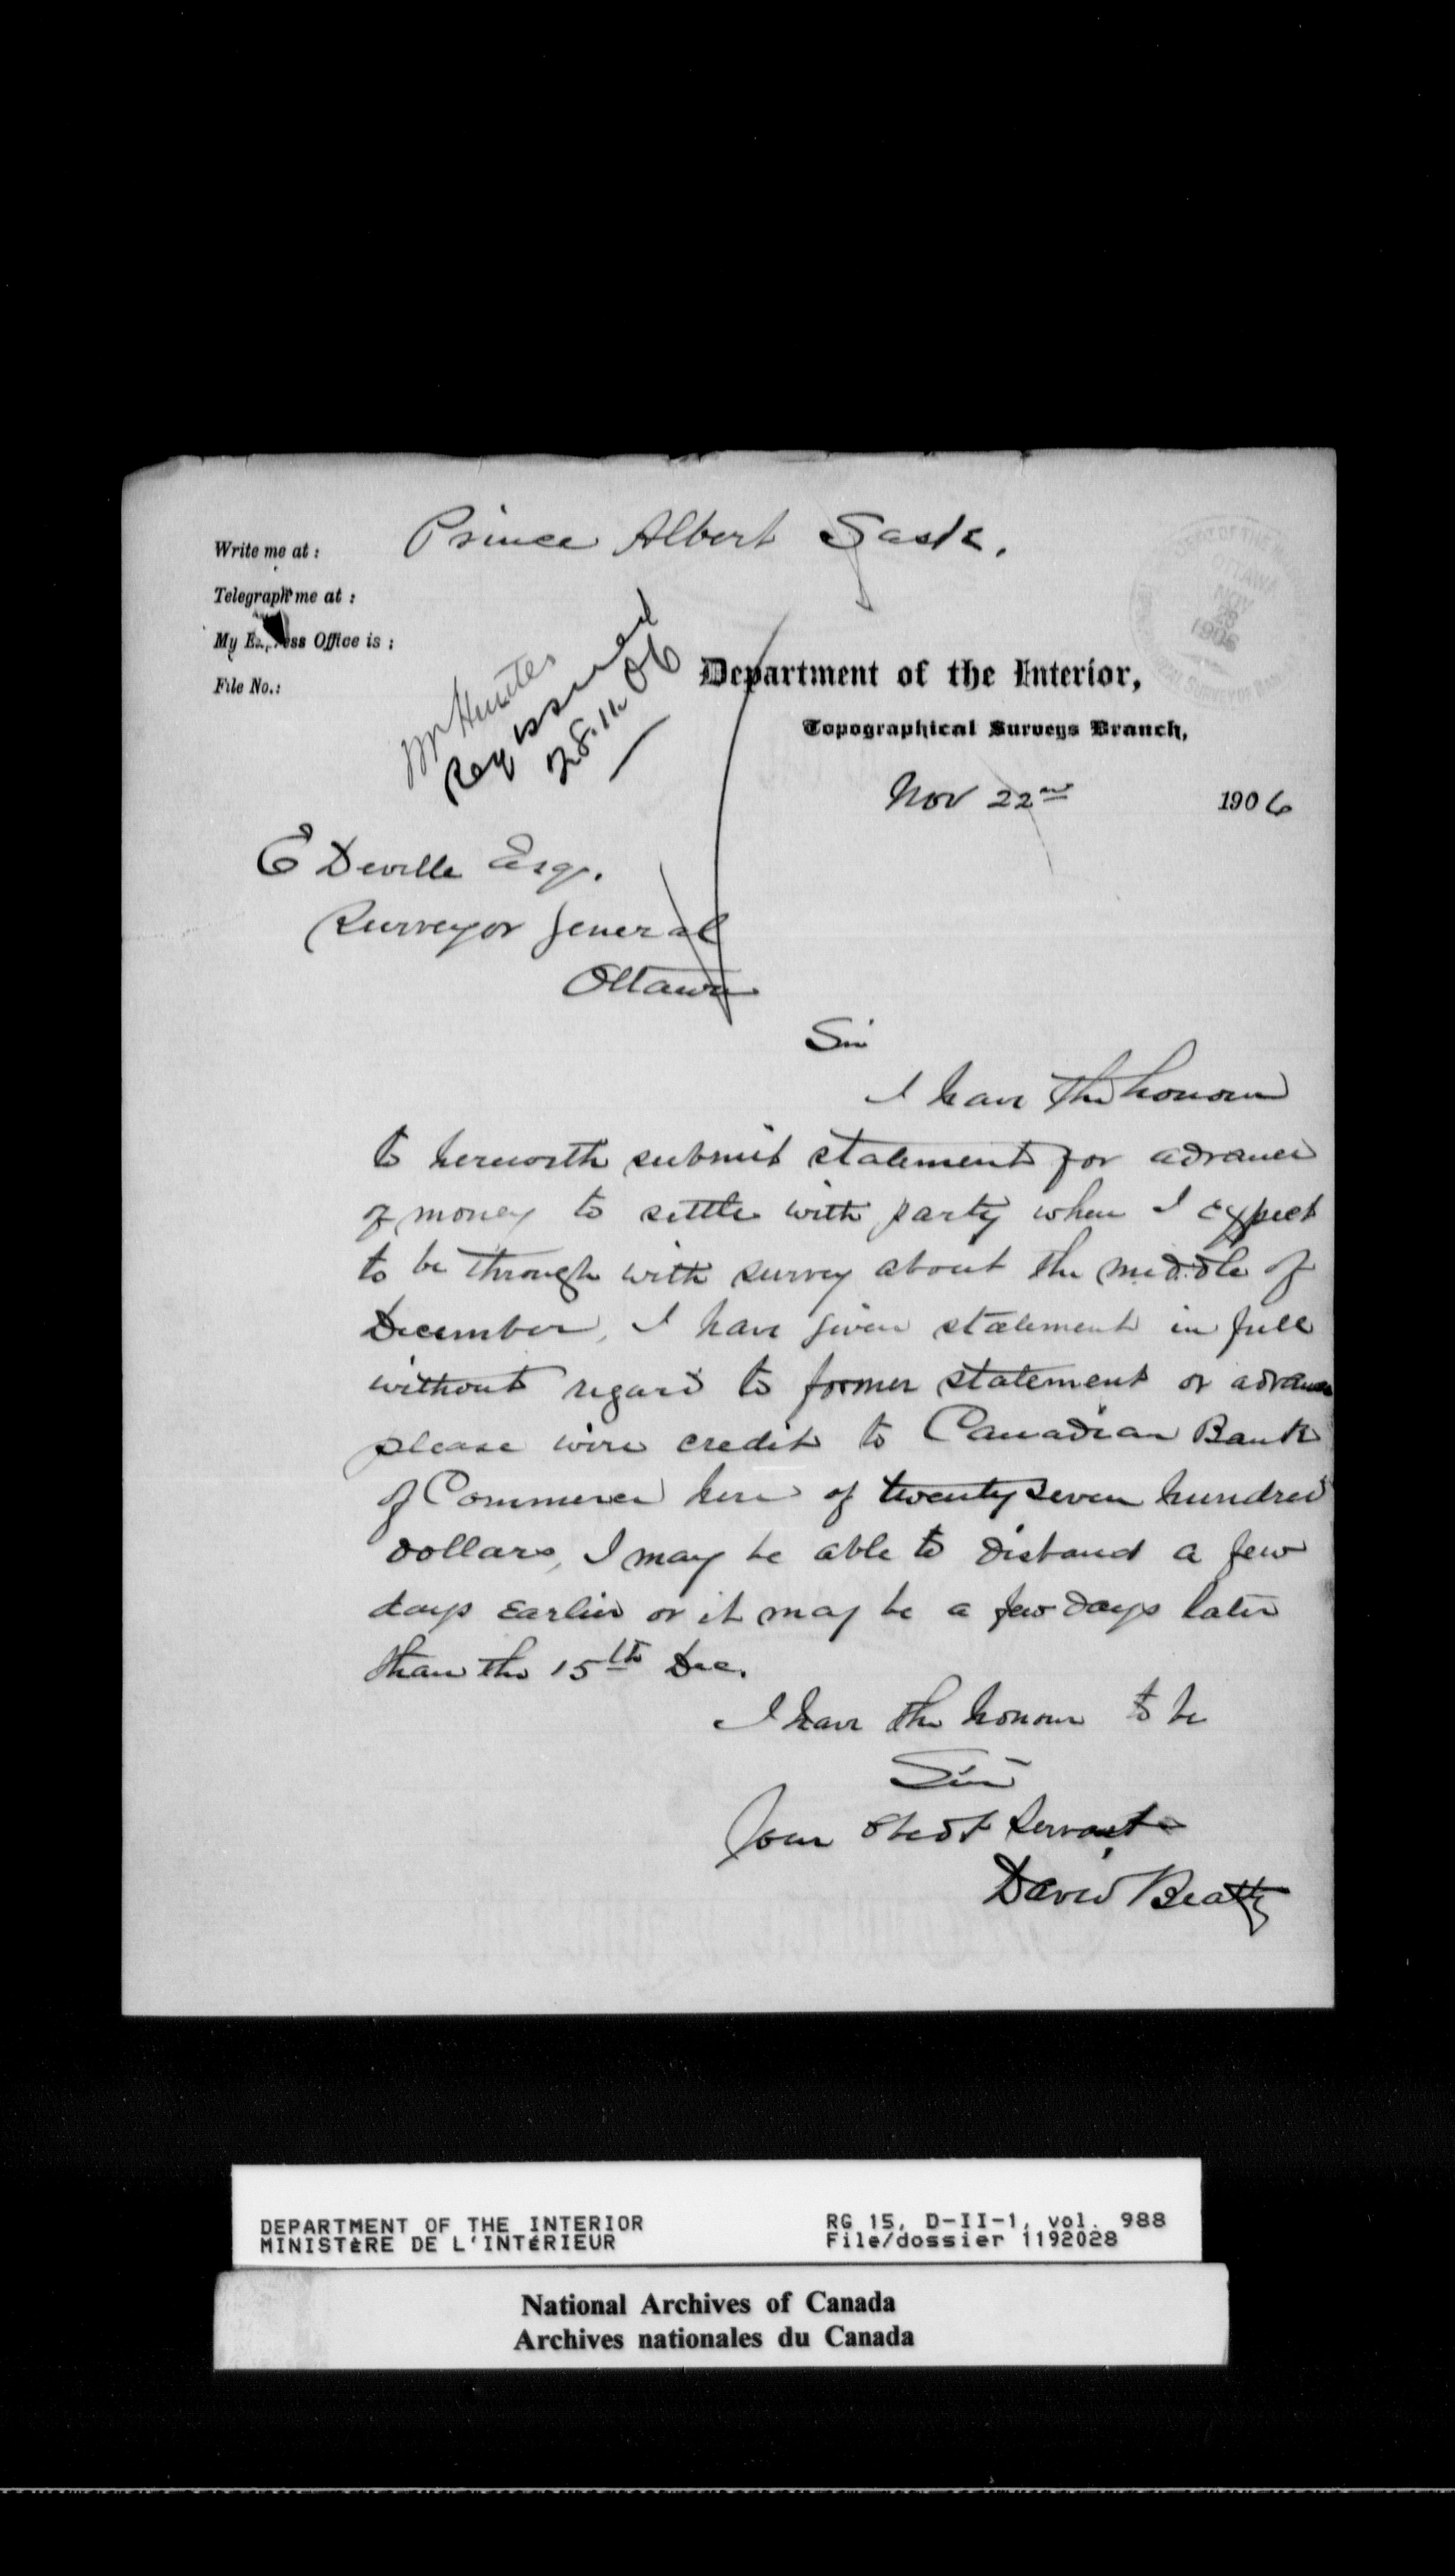 Write me at : Prince Albert Sask.
Telegraph me at :
My Express Office is :
File No.:
Mr Hunter
Req issued
28.11.06
Department of the Interior,
Topographical Surveys Branch,
Nov 22nd 1906
DEPT OF THE
OTTAWA
NOV
28
1906
E Deville Esq.
Surveyor General
Ottawa
Sir
I have the honour
to herewith submit statement for advance
of money to settle with party when I expect
to be through with survey about the middle of
December, I have given statement in full
without regard to former statement or advance
please wire credit to Canadian Bank
of Commerce here of twenty seven hundred
dollars, I may be able to disband a few
days earlier or it may be a few days later
than the 15th Dec.
I have the honour to be
Sir
Your obedt servant
David Beatty
DEPARTMENT OF THE INTERIOR RG 15, D-II-1, vol. 988
MINISTÈRE DE L'INTÉRIEUR File/dossier 1192028
National Archives of Canada
Archives nationales du Canada